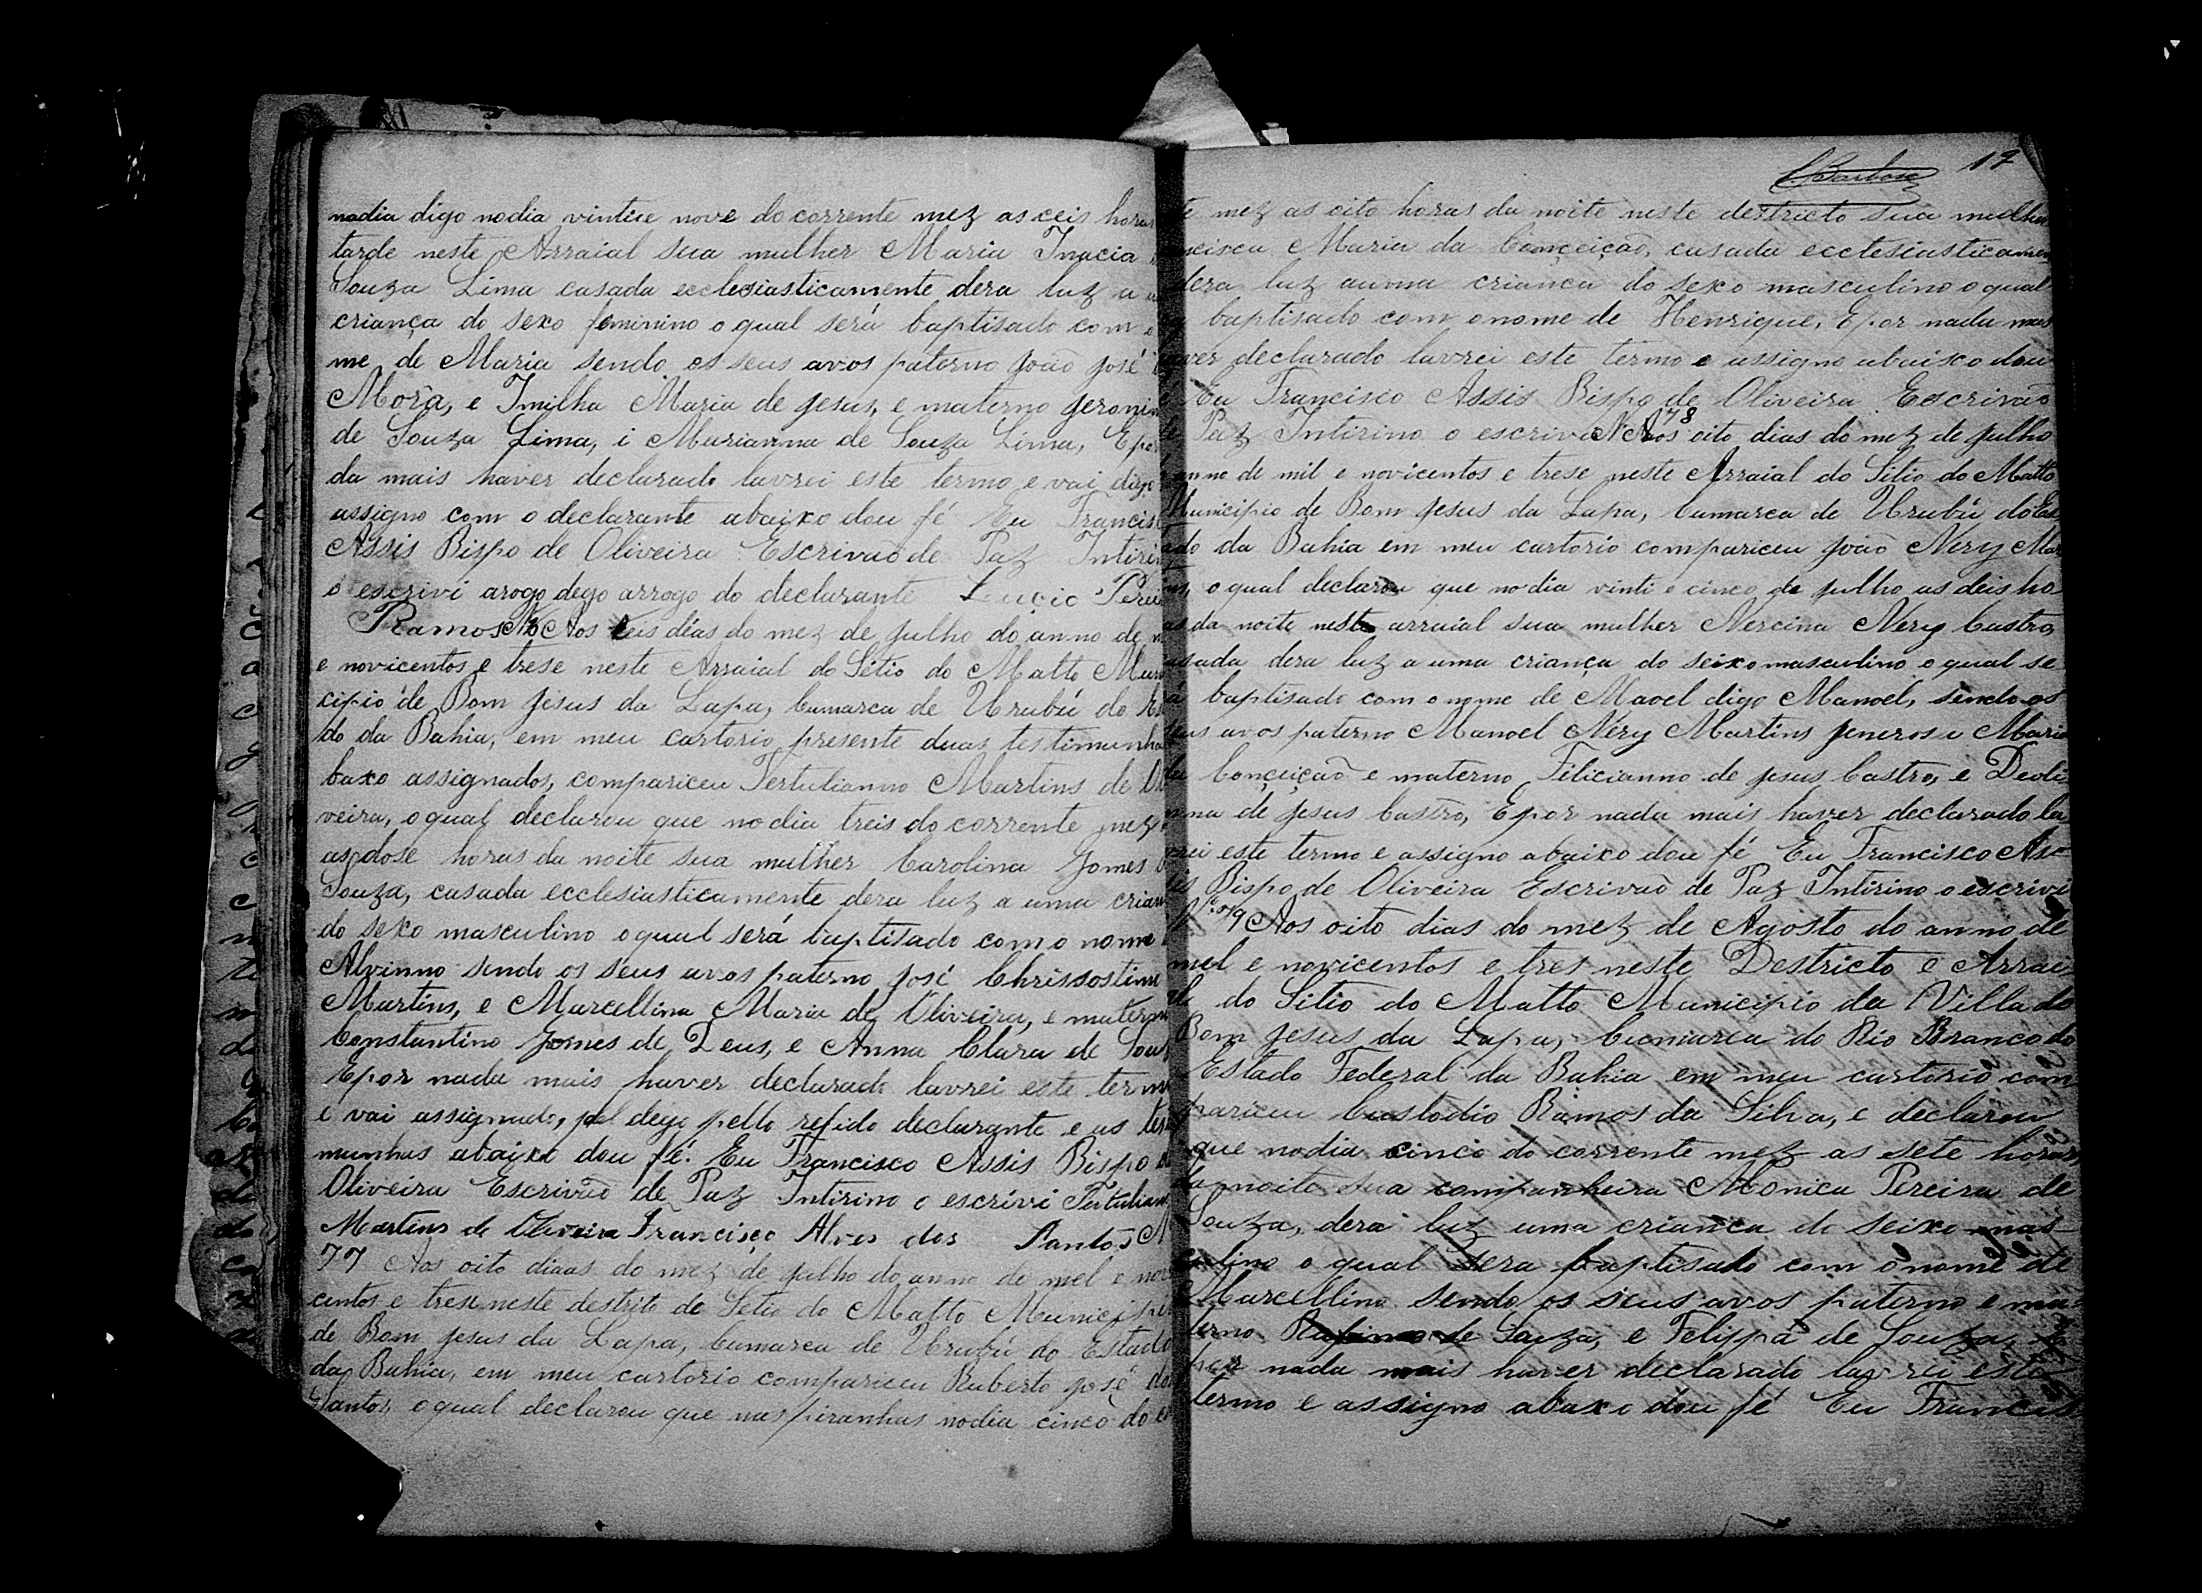 nadia digo nodia vinte e nove do corrente mez as ceis horas
tarde neste Arraial sua mulher Maria Inacia
Souza Lima casada ecclesiasticamente dera luz a
criança do sexo feminino o qual será baptisado com o
me de Maria sendo os seus avos paterno João José
Morã, e Imilha Maria de Jesus, e materno Jeronim
de Souza Lima, i Marianna de Souza Lima, Epor
da mais haver declarado lavrei este termo e vai digo
assigno com o declarante abaixo dou fé Eu Francis
Assis Bispo de Oliveira Escrivaõ de Paz Intiri
o escrivi arogo dego arrogo do declarante Lucio Perei
Ramos Aos seis dias do mez de Julho do anno de m
e novicentos e trese neste Arraial do Sitio do Matto Mun
cipio de Bom Jesus da Lapa, Cumarca de Urubú do Es
do da Bahia, em meu cartorio presente duas testimunha
baxo assignados, compariceu Tertulianno Martins de Oli
veira, o qual declarou que no dia treis do corrente mez
as dose horas da noite sua mulher Carolina Gomes
Souza, casada ecclesiasticamente dera luz a uma crian
do sexo masculino o qual será baptisado com o nome
Alvinno sendo os seus avos paterno José Chrissostimo
Martins, e Marcellina Maria de Oliveira, e matern
Constantino Gomes de Deus, e Anna Clara de Sou
Epor nada mais haver declarado lavrei este term
e vai assignado, pel dego pello refido declarante e as tes
munhas abaixo dou fé. Eu Francisco Assis Bispo
Oliveira Escrivaõ de Paz Intirino o escrivi Tertulian
Martins de Oliveira Francisco Alves dos Santos N
77 Aos oito diaas do mez de Julho do anno de mel e nov
centos e trese neste destrito de Setio do Matto Municipi
de Bom Jesus da Lapa, Cumarca de Urubú do Estado
da Bahia, em meu cartorio compariceu Ruberto José do
Santos, o qual declarou que nas piranhas nodia cinco do co
17
te mez as oito horas da noite neste destricto sua mulher
ncisca Maria da Conçeiçaõ, casada ecclesiasticamen
dera luz auma criança do sexo masculino o qual
baptisado com o nome de Henrique, Epor nada mais
aver declarado lavrei este termo e assigno abaixo dou
Eu Francisco Assis Bispo de Oliveira Escrivaõ
Paz Intirino o escrivi N 78 Aos oito dias do mez de Julho
anno de mil e novicentos e trese neste Arraial do Sitio do Matto
Municipio de Bom Jesus da Lapa, Cumarca de Urubú do Es
ado da Bahia em meu cartorio compariceu João Nery Mar
o qual declarou que nodia vinti e cinco de Julho as deis ho
as da noite neste arraial sua mulher Nercina Nery Castro,
asada dera luz a uma criança do seixo masculino o qual se
a baptisado com o nome de Mavel digo Manoel, sendo os
eus avos paterno Manoel Nery Martins Jeneros e Maria
da Conçeiçaõ e materno Filicianno de Jesus Castro, e Deoli
nna de Jesus Castro, Epor nada mais haver declarado la
vrei este termo e assigno abaixo dou fé Eu Francisco As=
is Bispo de Oliveira Escrivaõ de Paz Intirino o escrivi
79 Aos oito dias do mez de Agosto do anno de
mel e novicentos e tres neste Destricto e Arrae
do Sitio do Matto Municipio da Villa do
Bom Jesus da Lapa, Cumarca do Rio Branco do
Estado Federal da Bahia em meu cartorio com
pariceu Custodio Ramos da Silva, e declarou
que nodia cinco do corrente mez as sete horas
da noite sua companheira Monica Pereira de
Souza, dera luz uma criança do seixo mas
culino o qual sera baptisado com o nome de
Marcellino sendo os seus avos paterno e ma
terno Rufino de Souza, e Felippa de Souza,
por nada mais haver declarado lavrei este
termo e assigno abaxo dou fé Eu Francis